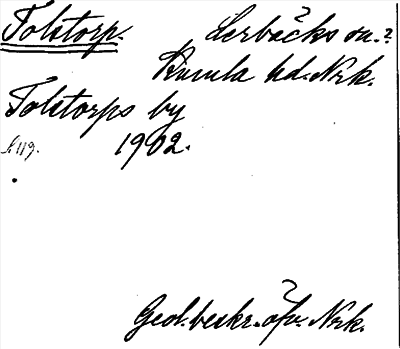 Tolstorp. Lerbäcks sn.?
Kumla hd. Nrk.
Tolstorps by
s. 119. 1902.
Geol. beskr. öfv. Nrk.